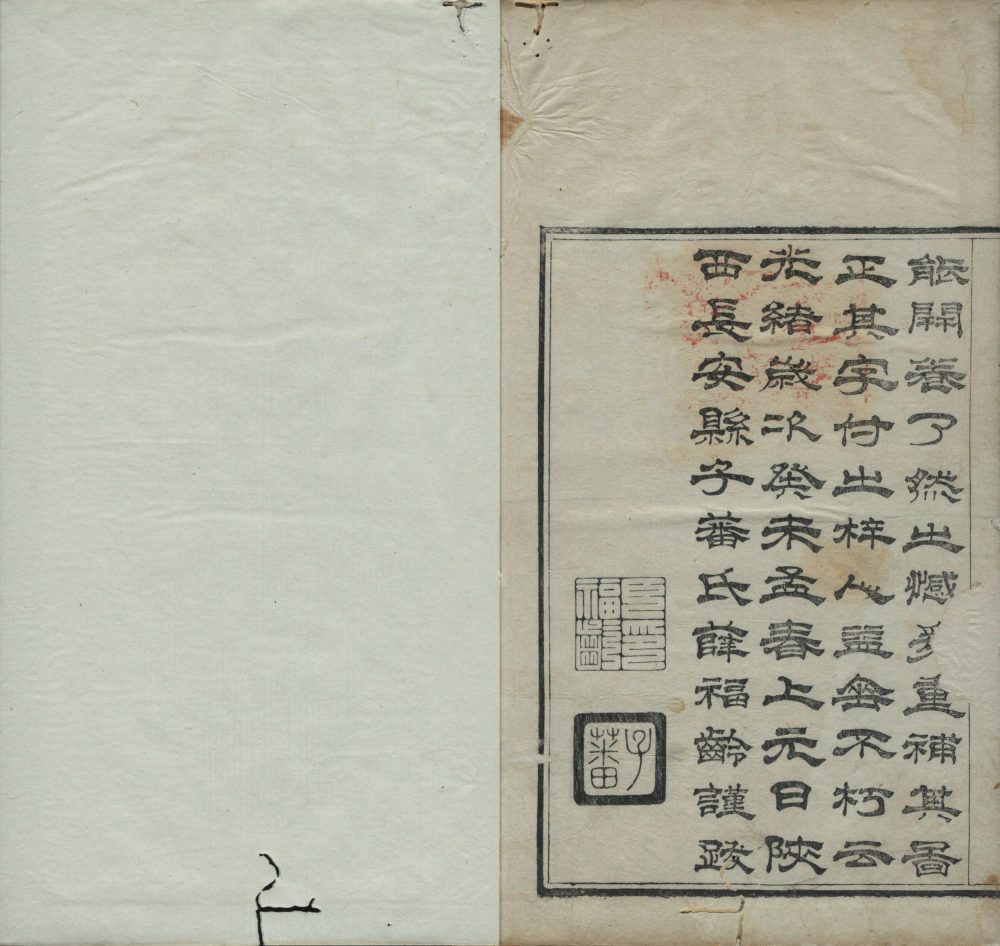 能開卷了然之憾重補其啚
正其字付之梓以並垂不朽云
光緒歲次癸未孟春上元日陝
西長安縣子蕃氏薛福齡謹跋
福齡
子蕃